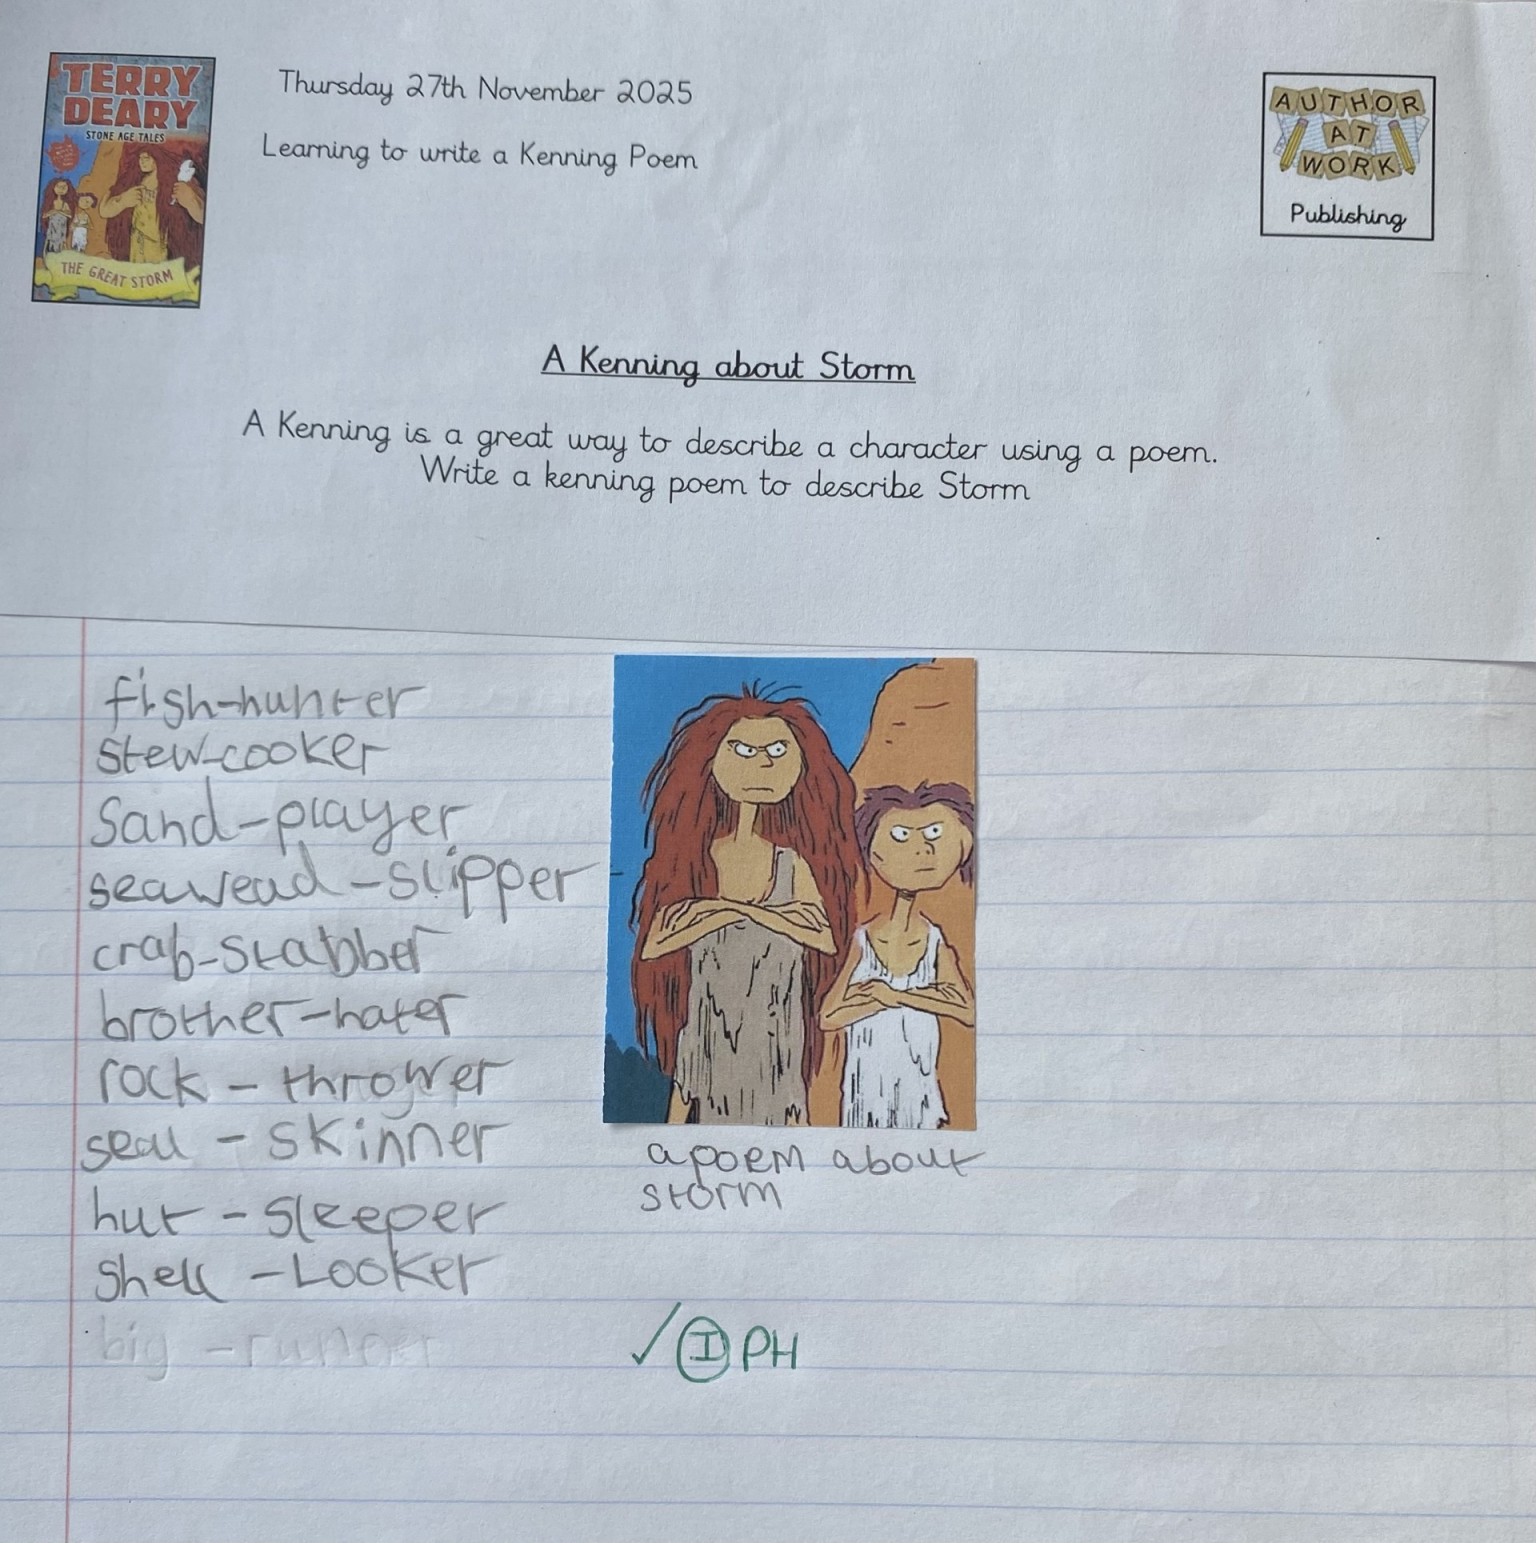 TERRY
DEARY
STONE AGE TALES
THE GREAT STORM
Thursday 27th November 2025
Learning to write a Kenning Poem
AUTHOR
AT
WORK
Publishing
A Kenning about Storm
A Kenning is a great way to describe a character using a poem.
Write a kenning poem to describe Storm
fish-hunter
stew-cooker
Sand-player
seawead-slipper
crab-stabber
brother-hater
rock - thrower
seal - skinner
hut - sleeper
shell - Looker
big - runner
a poem about
storm
✓ I PH